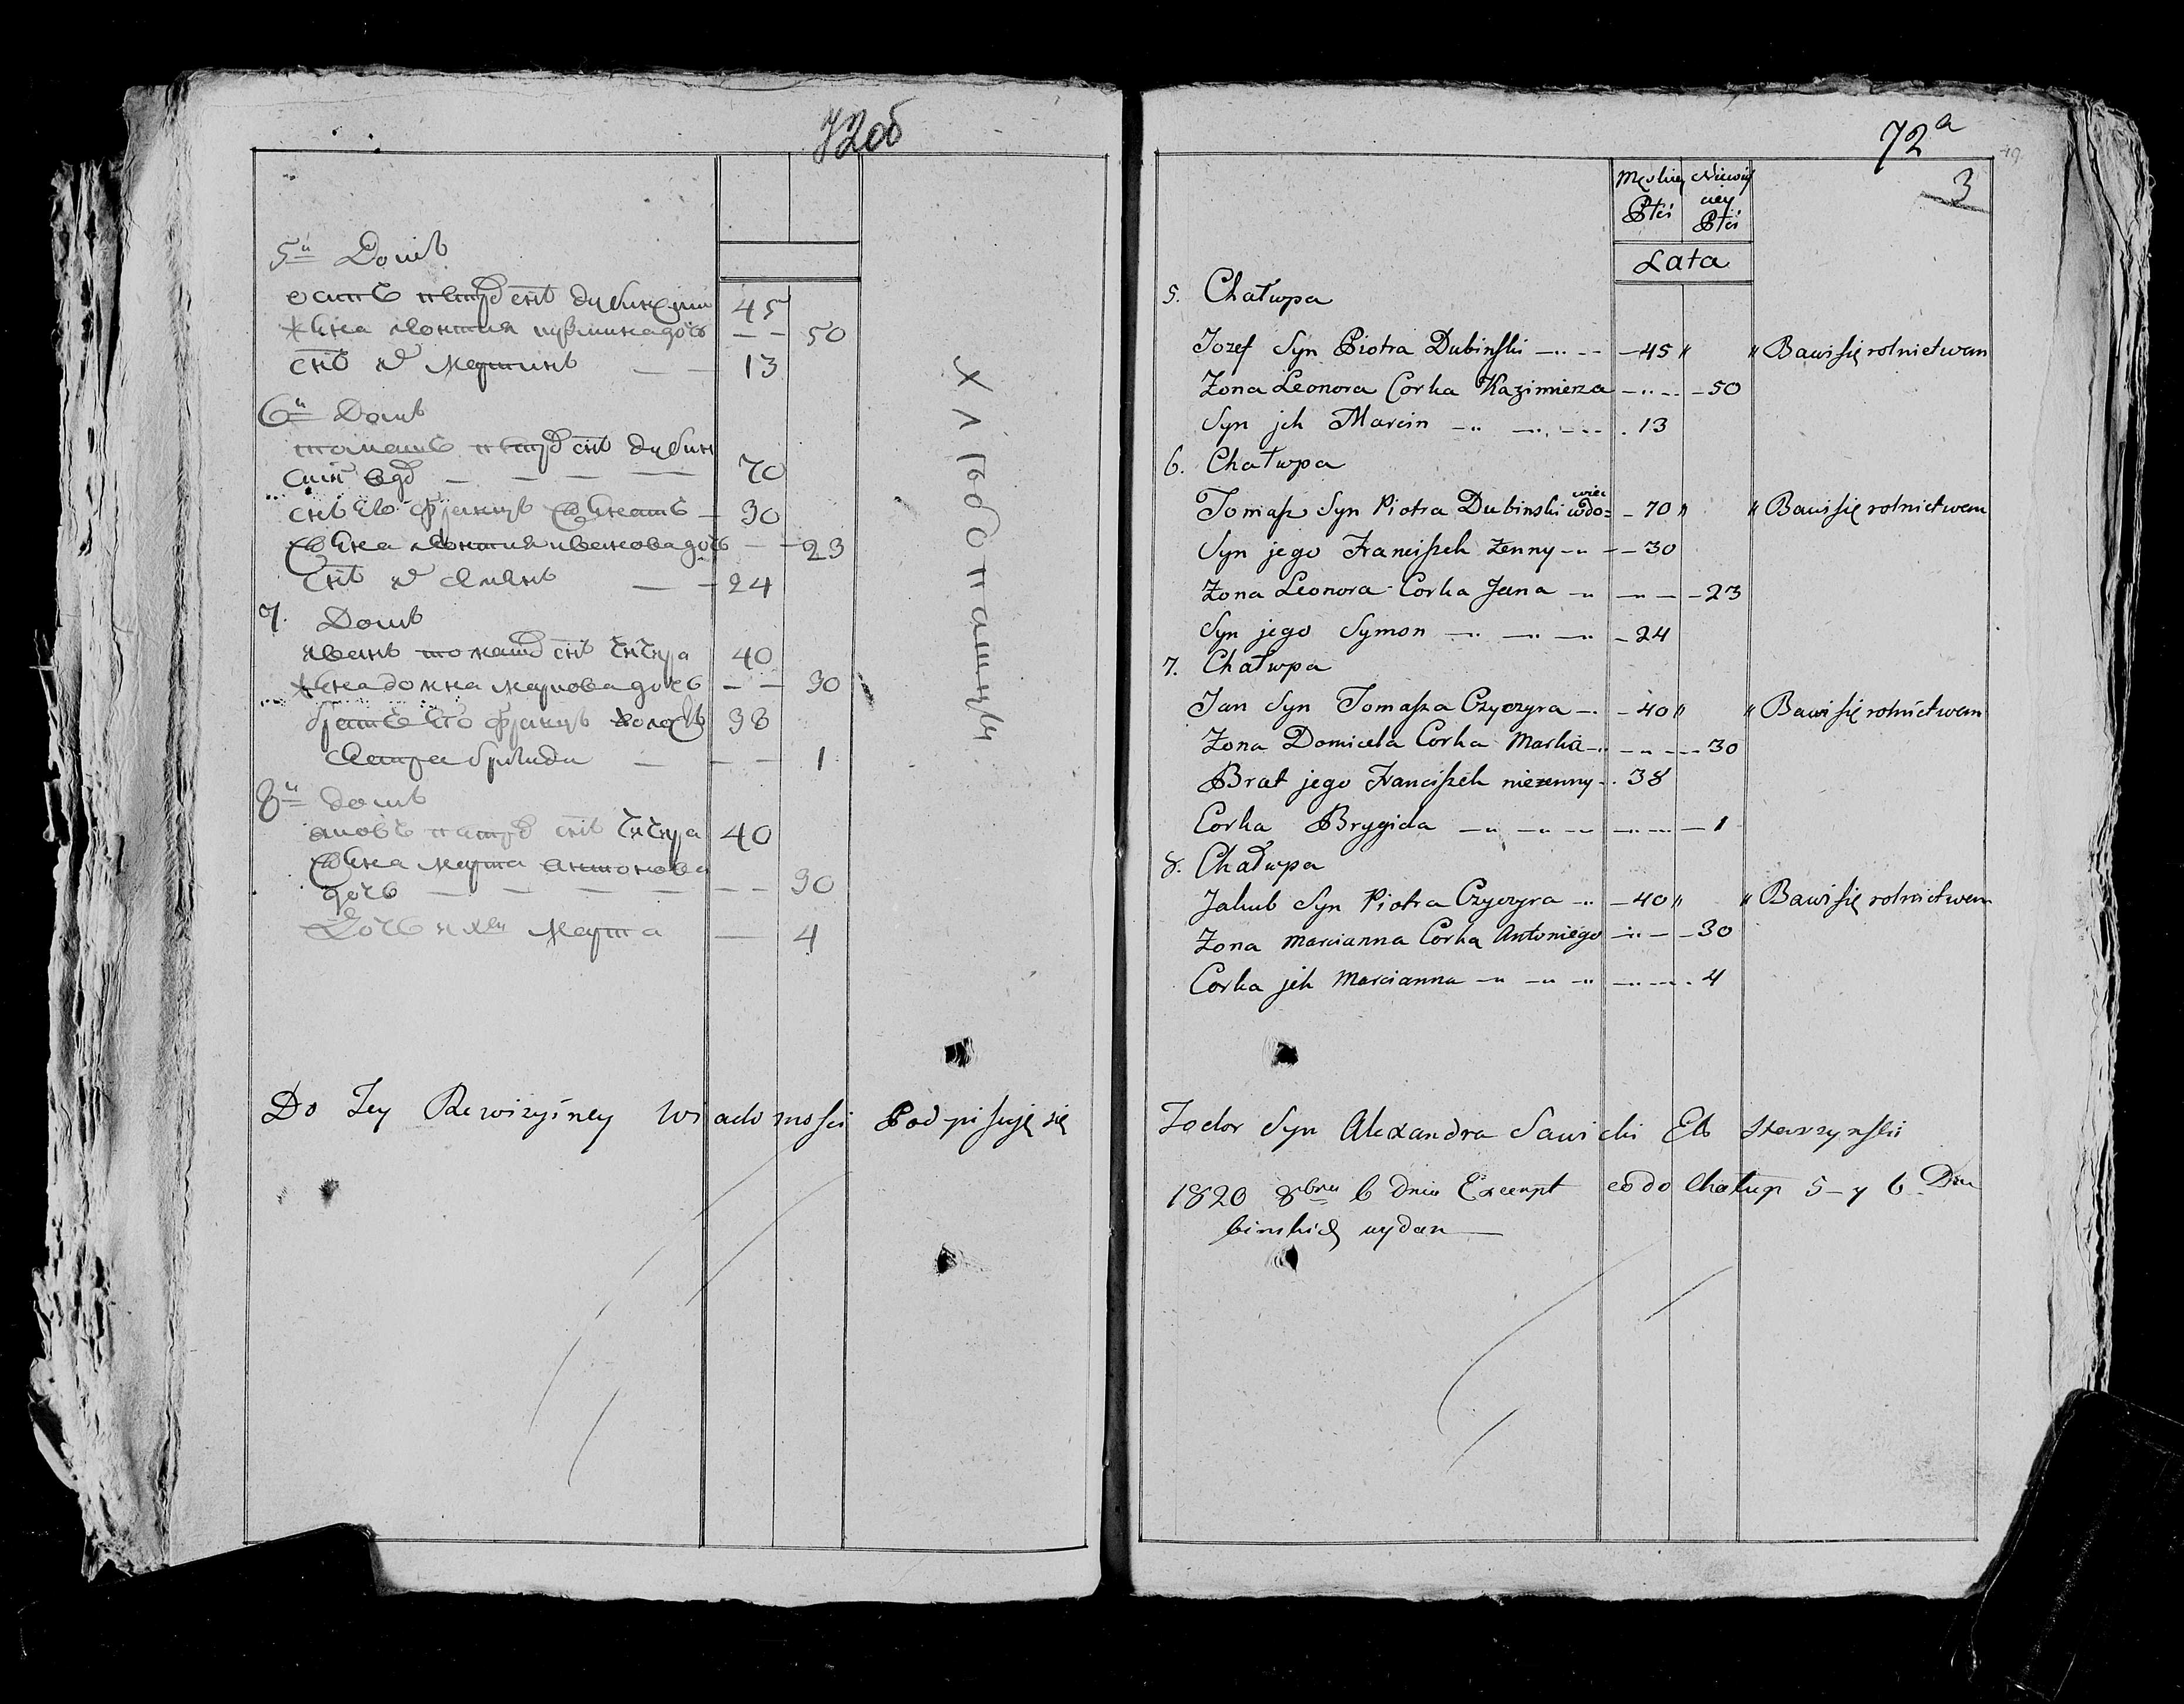 72об
5й Домъ
осипъ петров снъ дубинский 45
жена леонтия дочъ — — 50
снъ мартинъ — — 13
6й Домъ
томашъ петров снъ дубин
ский вдо — — — — 70
снъ его францъ женатъ — 30
жена леонтия иванова дочъ — — 23
снъ семенъ — — 24
7. Домъ
иванъ томашов снъ чичира 40
жена домна маркова дочъ — — 30
братъ его францъ холостъ 38
сестра бригида — — — 1
8й домъ
яковъ петров снъ чичира 40
жена марта антонова
дочъ — — — — — — 30
Дочъ ихъ марта — 4
хлѣбопашцы
Do Tey Rewizyiney Wiadomości Podpisuję się
72a
3
Męskiey Płci
Niewiesciey Płci
Lata
5. Chałupa
Jozef Syn Piotra Dubinski — — 45 " " Bawi się rolnictwem
Żona Leonora Corka Kazimierza — — 50
Syn jch Marcin — — 13
6. Chałupa
Tomasz Syn Piotra Dubinski wdowiec — 70 " " Bawi się rolnictwem
Syn jego Franciszek żenny — — 30
Żona Leonora Corka Jana — — — 23
Syn jego Symon — — — 24
7. Chałupa
Jan Syn Tomasza Czyczyra — — 40 " " Bawi się rolnictwem
Żona Domicela Corka Marka — — — 30
Brat jego Franciszek nieżenny — 38
Corka Brygida — — — — — 1
8. Chałupa
Jakub Syn Piotra Czyczyra — — 40 " " Bawi się rolnictwem
Żona Marcianna Corka Antoniego — — 30
Corka jch Marcianna — — — — 4
Fodor Syn Alexandra Sawicki
1820 8bra 6 Dnia Excerpt co do Chałup 5 y 6 Du
binskich wydan —